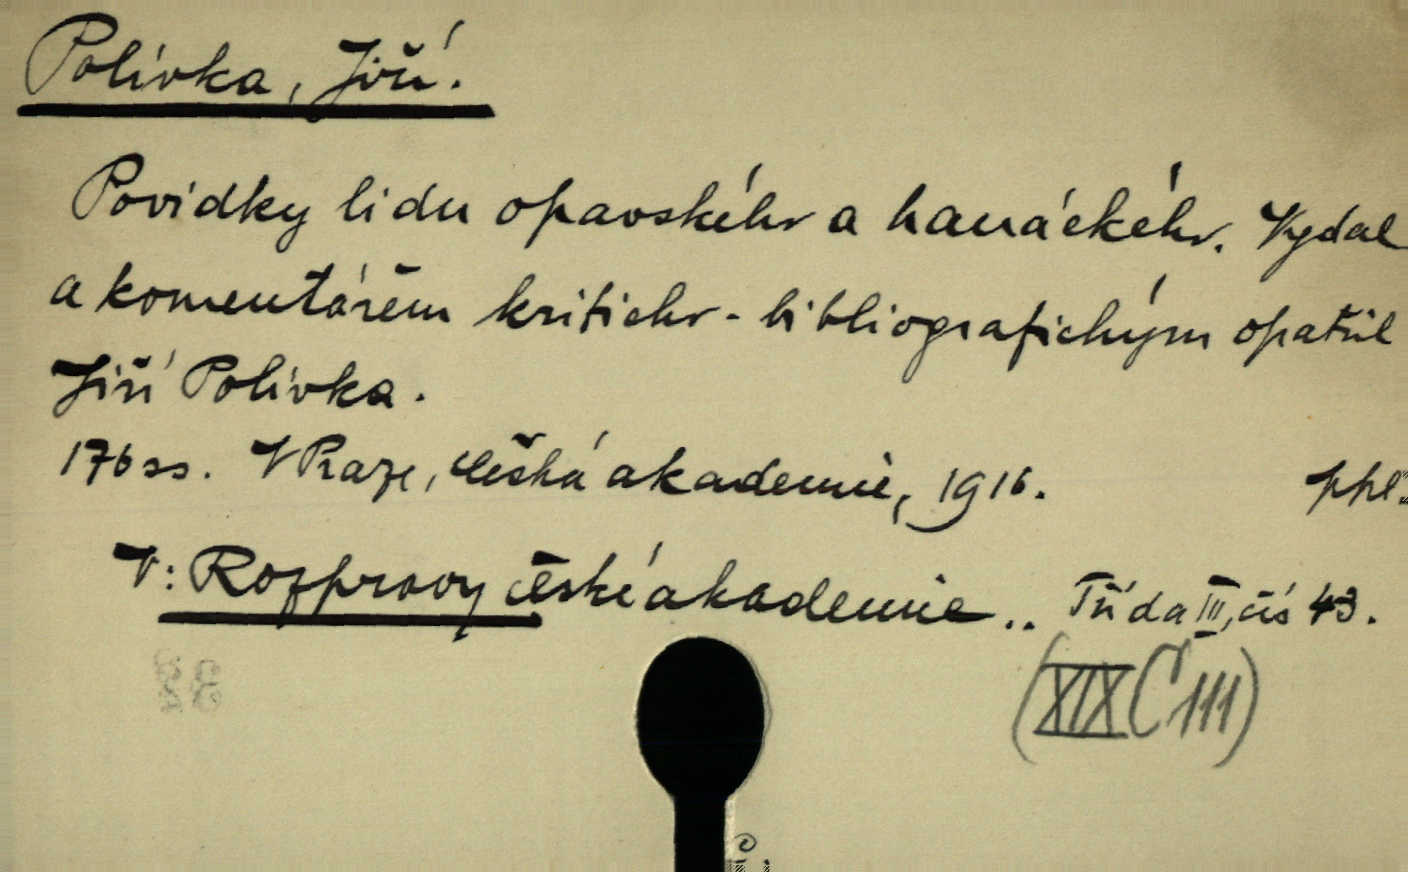 Polívka, Jiří.
Povídky lidu opavského a hanáckého. Vydal
a komentářem kriticko-bibliografickým opatřil
Jiří Polívka.
176 ss. V Praze, Česká akademie, 1916. ppl.
V: Rozpravy České akademie.. Třída III, čís 43.
(XIX C 111)